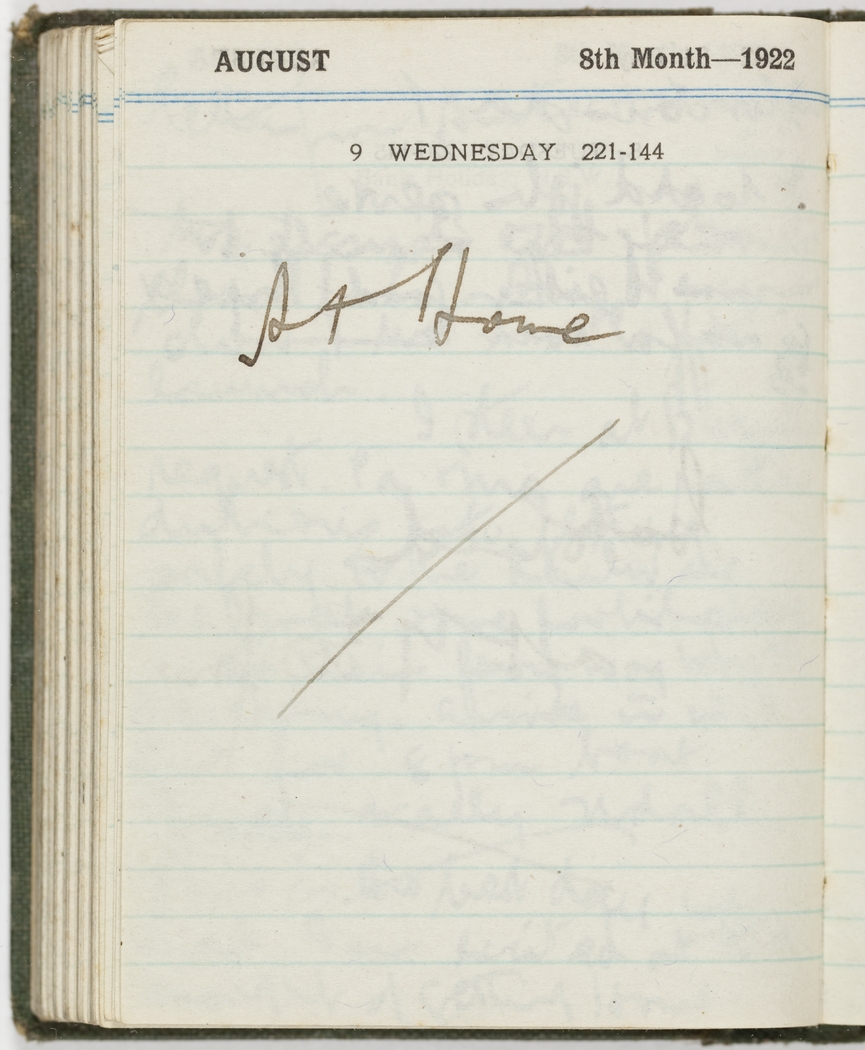 AUGUST 8th Month—1922
9 WEDNESDAY 221-144
At Home